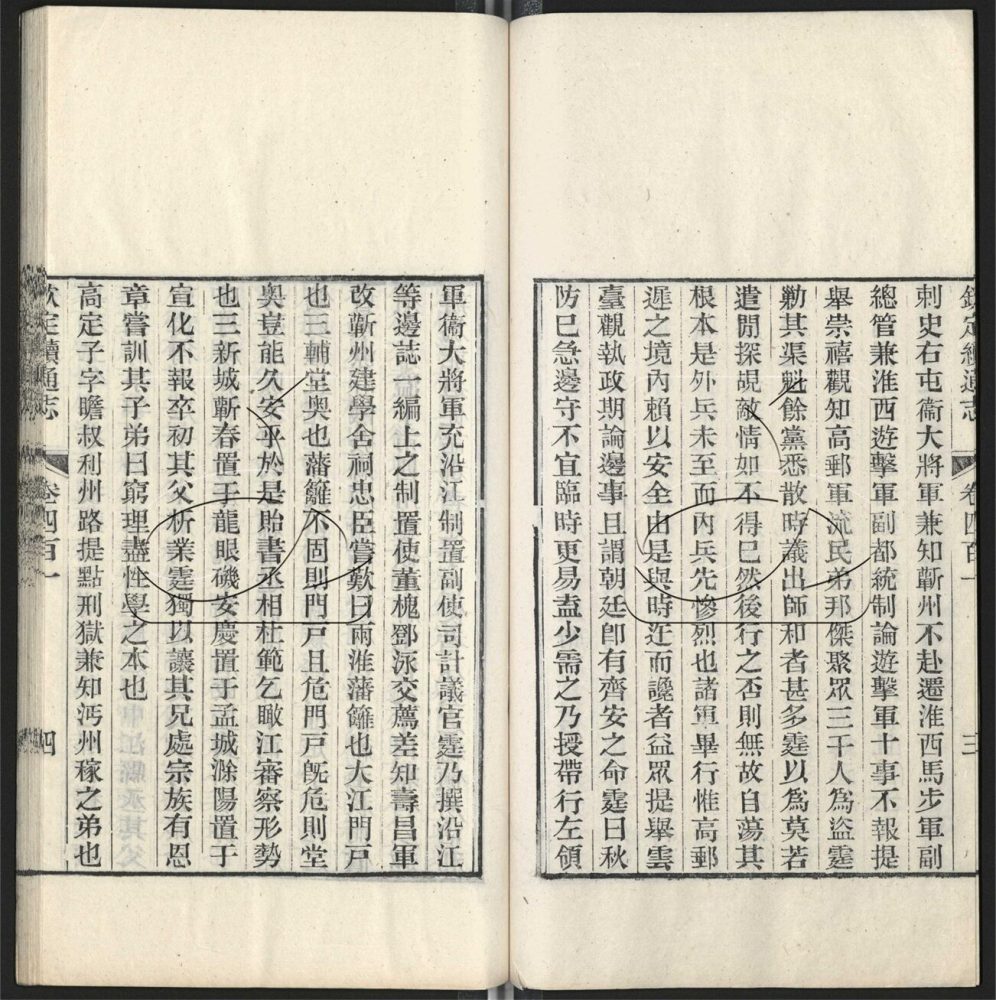 欽定續通志 卷四百一 三
刺史右屯衞大將軍兼知蘄州不赴遷淮西馬步軍副
總管兼淮西遊擊軍副都統制論遊擊軍十事不報提
舉崇禧觀知高郵軍流民弟邦傑聚眾三千人爲盜霆
勦其渠魁餘黨悉散時議出師和者甚多霆以爲莫若
遣閒探覘敵情如不得已然後行之否則無故自蕩其
根本是外兵未至而內兵先慘烈也諸軍畢行惟高郵
遲之境內賴以安全由是與時迕而讒者益眾提舉雲
臺觀執政期論邊事且謂朝廷卽有齊安之命霆曰秋
防已急邊守不宜臨時更易盍少需之乃授帶行左領
軍衞大將軍充沿江制置副使司計議官霆乃撰沿江
等邊誌一編上之制置使董槐鄧泳交薦差知壽昌軍
改蘄州建學舍祠忠臣嘗歎曰兩淮藩籬也大江門戸
也三輔堂奧也藩籬不固則門戸且危門戸旣危則堂
奧豈能久安乎於是貽書丞相杜範乞瞰江審察形勢
也三新城蘄春置于龍眼磯安慶置于孟城滁陽置于
宣化不報卒初其父析業霆獨以讓其兄處宗族有恩
章嘗訓其子弟曰窮理盡性學之本也
高定子字瞻叔利州路提點刑獄兼知沔州稼之弟也
欽定續通志 卷四百一 四